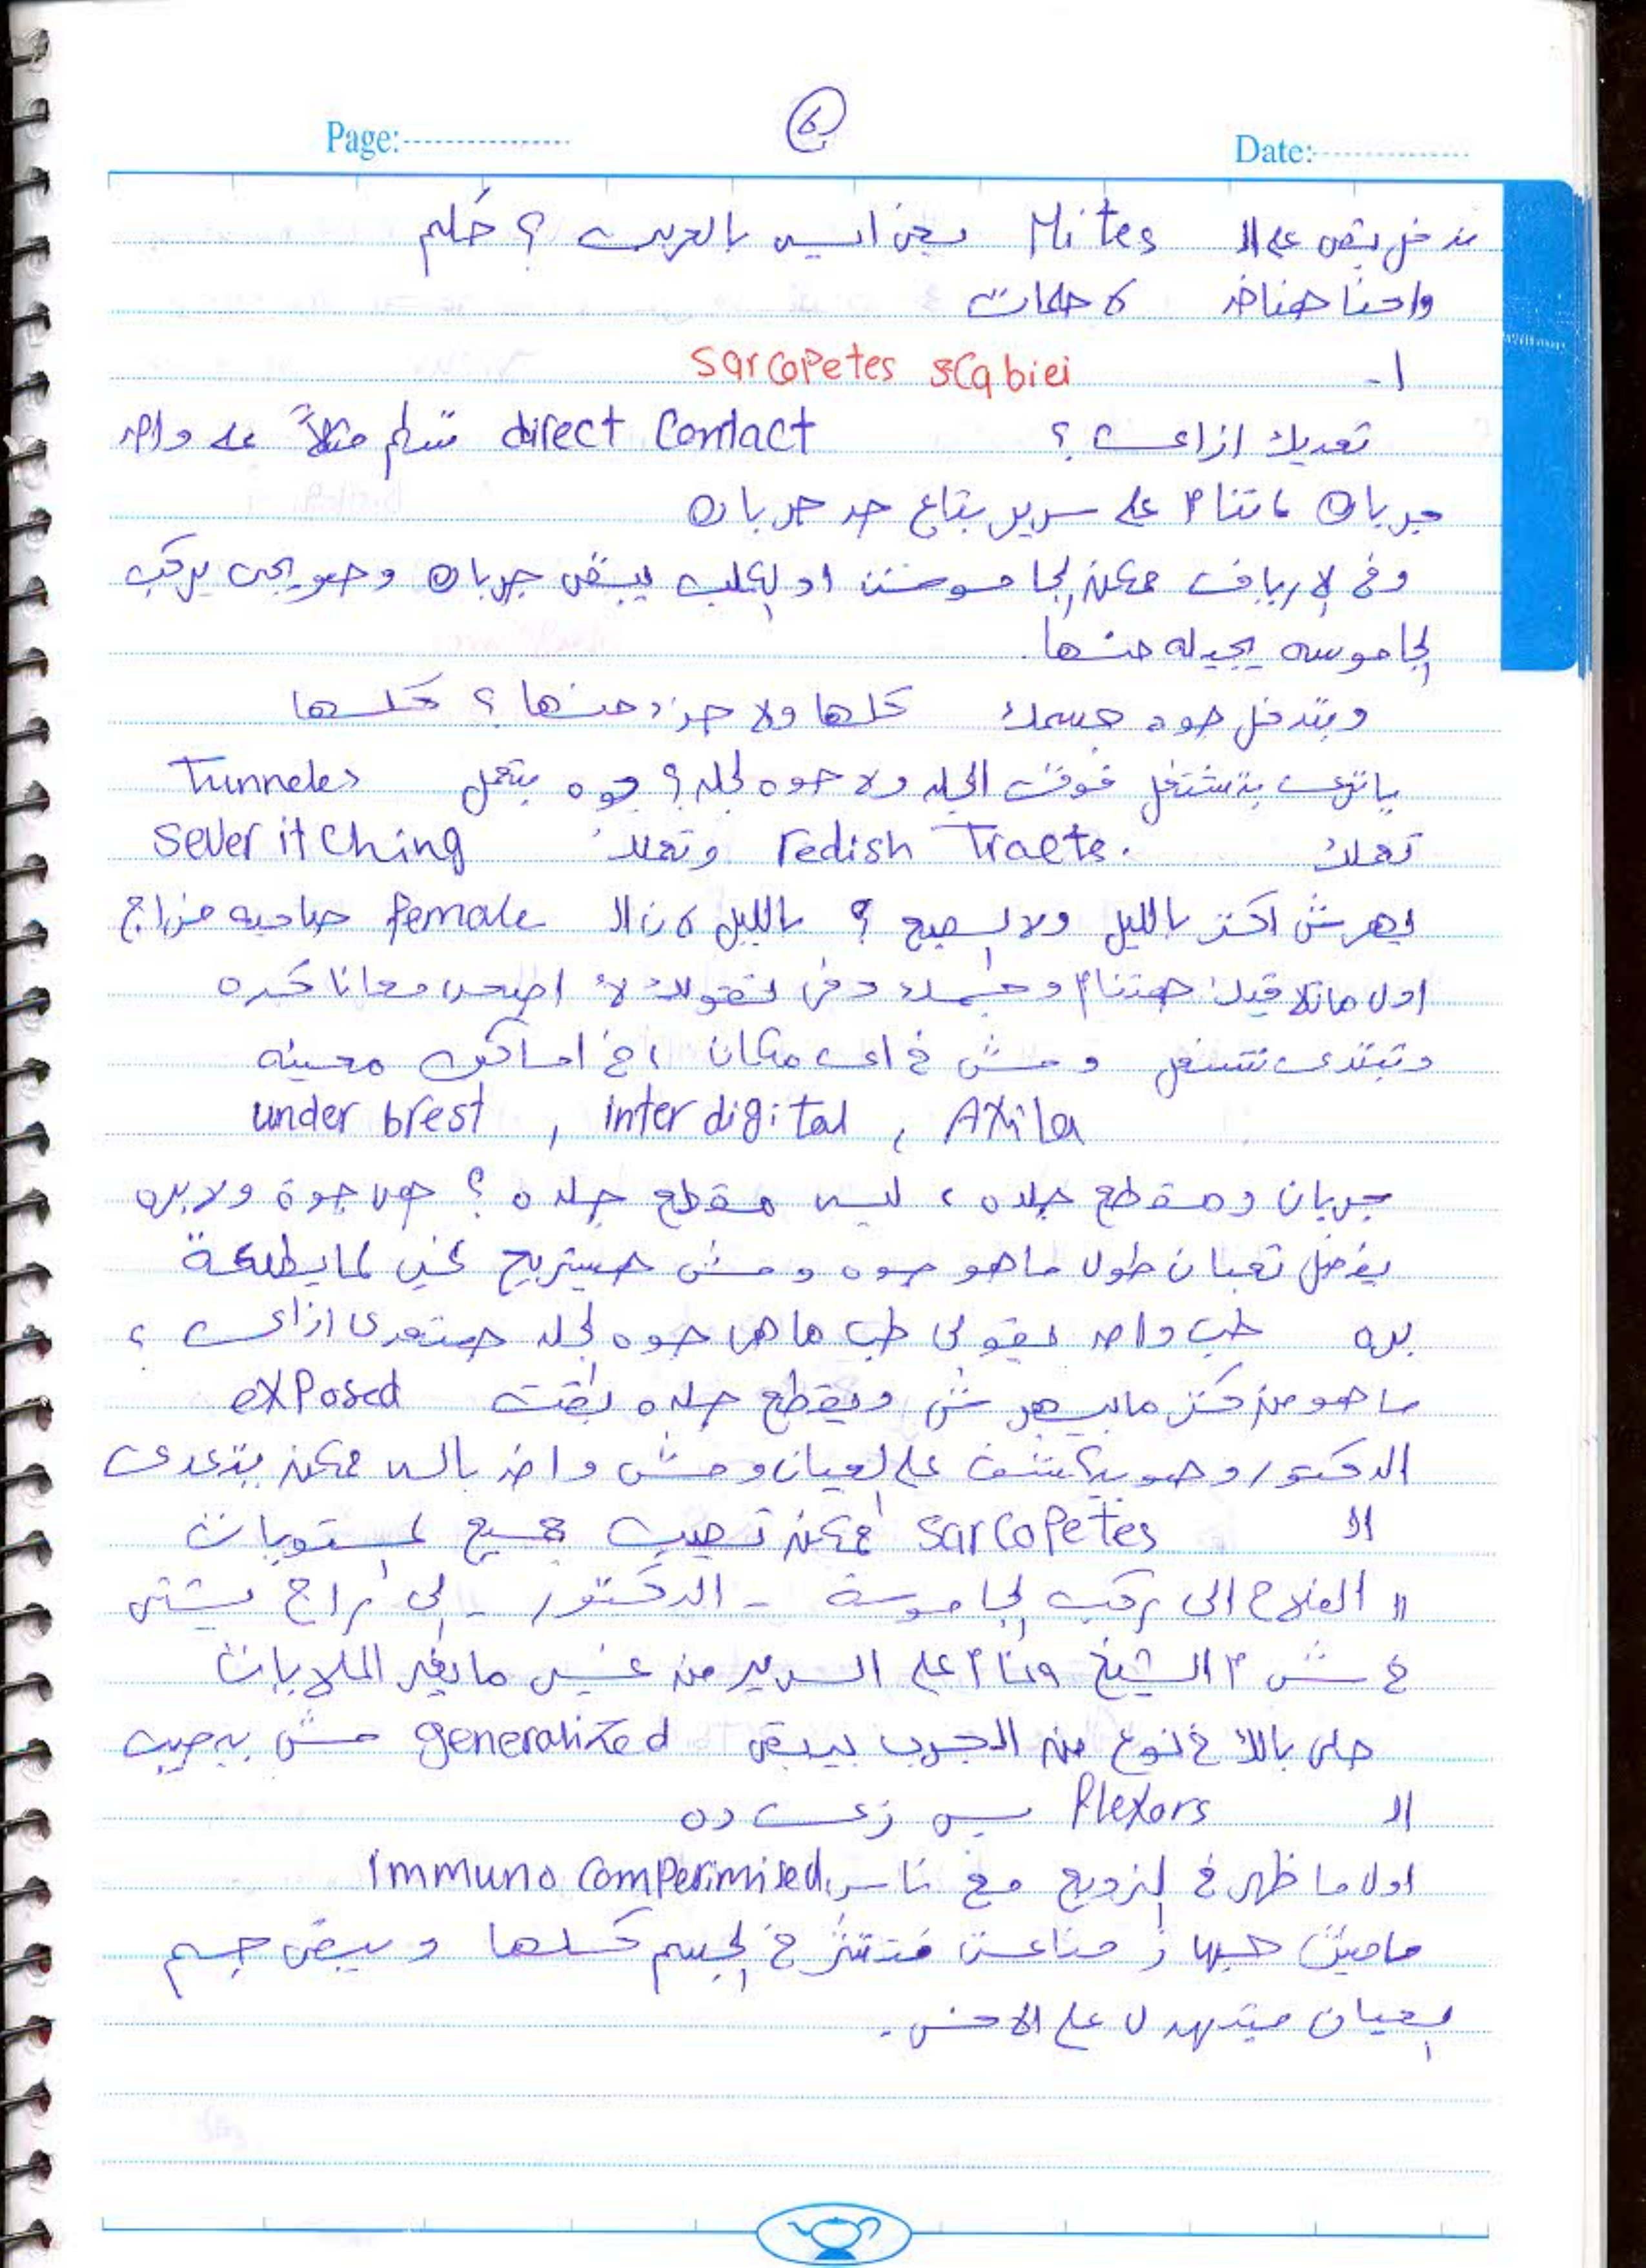 Page:
6
Date:
ندخل بقى على الـ Mites يعنى ايه بالعربى ؟ حلم
واحنا هناخد ٤ حلمات
١- Sarcopetes scabiei
تعديك ازاى ؟ direct Contact تسلم مثلاً على واحد
جربان ماتنام على سرير بتاع حد جربان
وفى الارياف ممكن الجاموسة او الكلب يبقى جربان وهو يجى يركب
الجاموسه يجيله منها.
وبتدخل جوه جسمك كلها ولا جزء منها ؟ كلها
ياترى بتشتغل فوق الجلد ولا جوه الجلد ؟ جوه بتعمل Tunneles
تعملك redish Traets. وتعملك sever itching
يهرش اكتر بالليل ولا الصبح ؟ بالليل لان الـ female صاحبه مزاج
اول ماتلاقيك هتنام وجسمك دفى تقولك لا اصحى معانا كده
وتبتدى تشتغل ومش فى اى مكان ، فى اماكن معينه
under brest , inter digital , Axila
جربان ومقطع جلده ، ليه مقطع جلده ؟ هى جوة ولا بره
يفضل تعبان طول ماهو جوه ومش هيستريح غير لما يطلعة
بره طب واحد يقولى طب ما هى جوه الجلد هتعدى ازاى ؟
ما هو من كتر مابيهرش ويقطع جلده بقت exposed
الدكتور وهو بيكشف على العيان ومش واخد باله ممكن يتعدى
الـ Sarcopetes ممكن تصيب جميع المستويات
" الفلاح الى ركب الجاموسة - الدكتور - الى راح يشتى
فى شرم الشيخ ونام على السرير من غير مايغير الملايات
خلى بالك فى نوع من الجرب بيبقى generalized مش بيصيب
الـ Plexors بس زى ده
اول ما ظهر فى النرويج مع ناس immuno comperimised
مافيش جهاز مناعى فتنتشر فى الجسم كلها ويبقى جسم
العيان متبهدل على الاخر.